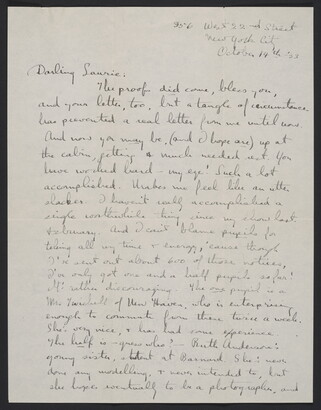 West 22nd Street
New York City
October 19th '33
Darling Laurie:
The proof did come, bless you,
and your letter, too, but a tangle of circumstance
has prevented a real letter from me until now.
And now you may be, (and I hope are) up at
the cabin, getting a much needed rest. You
have worked hard - my eye! Such a lot
accomplished. Makes me feel like an utter
slacker. I haven't really accomplished a
single worthwhile thing since my show last
February. And I can't blame pupils for
taking all my time & energy, 'cause though
I've sent out about 600 of those notices,
I've only got one and a half pupils so far!
It's rather discouraging. The one pupil is a
Mrs. of New Haven, who is enterprising
enough to commute from there twice a week.
She's very nice, & has had some experience.
The half is - guess who? - Ruth Anderson's
young sister, student at Barnard. She's never
done any modelling, & never intended to, but
she hopes eventually to be a photographer, and